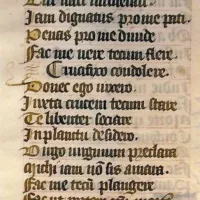 Iam dignatus pro me pati
Penas pro me diuide
Fac me vere tecum flere
Crucifixo condolere
Donec ego vixero
Iuxta crucem tecum stare
Te libenter sociare
In planctu desidero
Virgo virginum preclara
Michi iam nō sis amara
Fac me tecū plangere
Fac ut